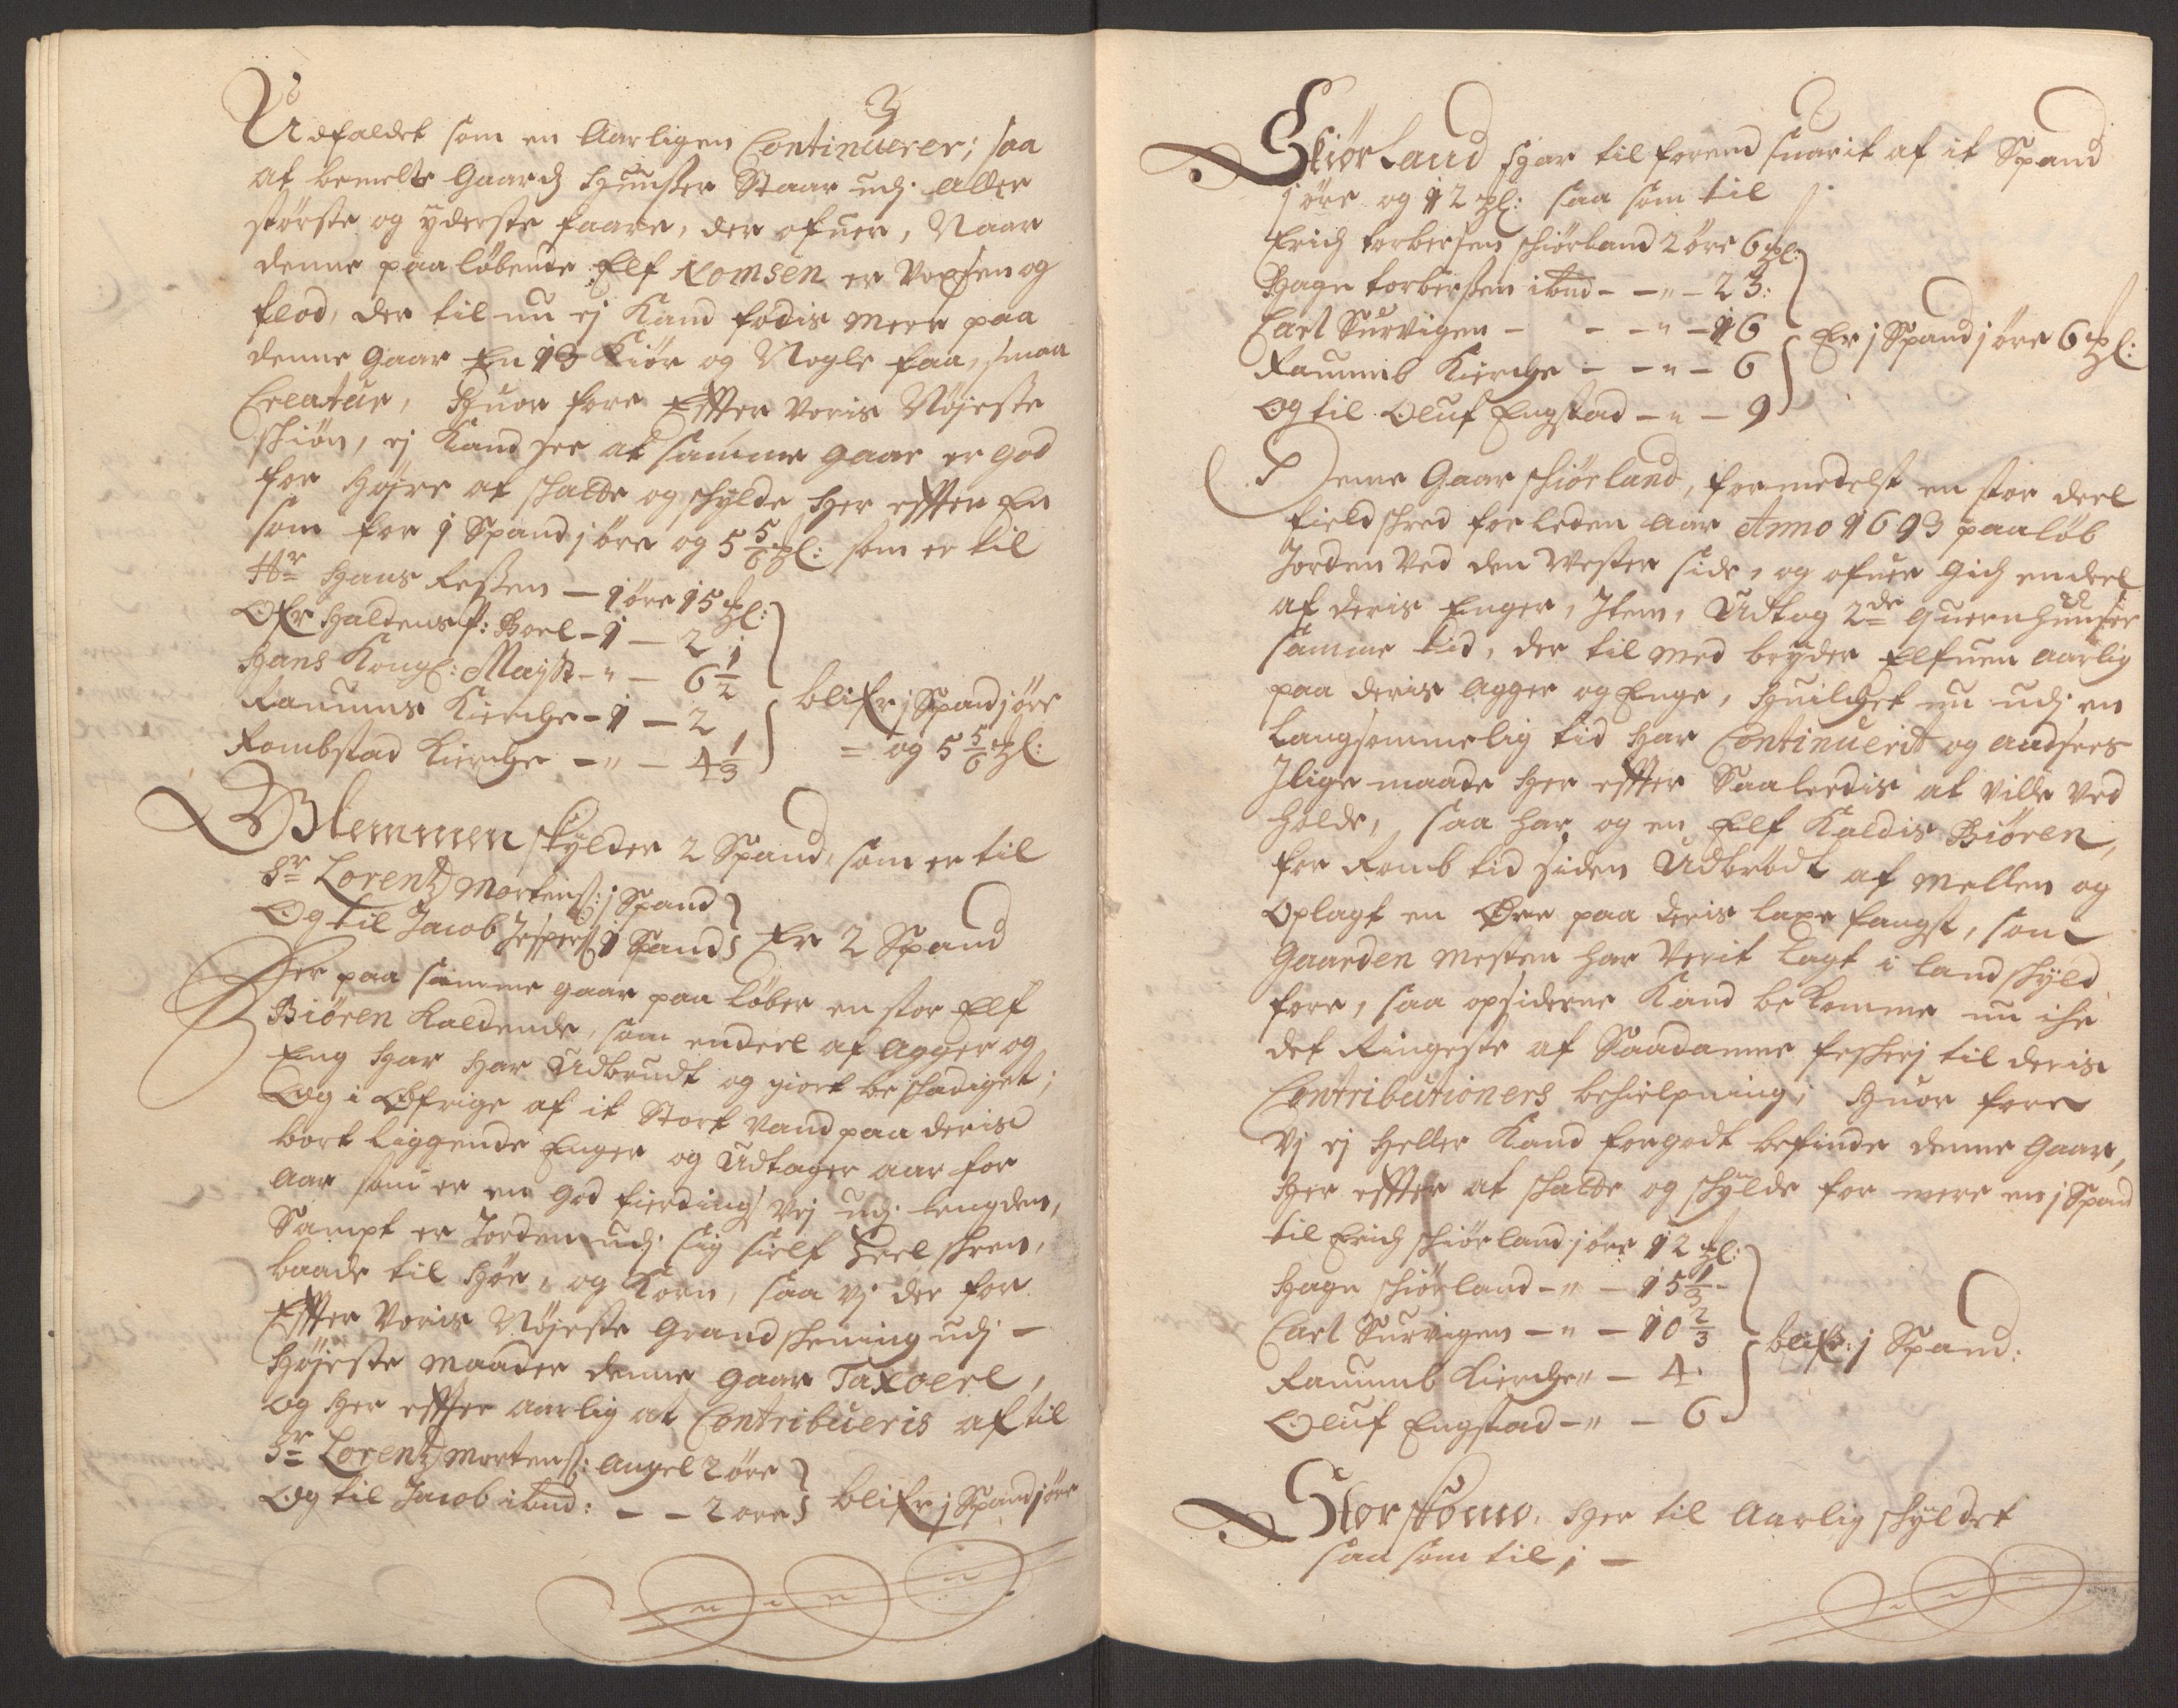 Udfaldet som en Aarligen Continuerer; saa
at bemelte Gaardz Huusser Staar udj aller
störste og yderste faare, der ofuer, Naar
denne paaløbende Elf Nomsen er Voxsen og
flod, der til nu ej Kand födis mere paa
denne Gaar En 13 Kiör og Nogle faa, smaa
Creatur, Huor fore Effter Voris Nöjeste
skiön, ej Kand see at samme gaar er god
for Højre at skatte og schylde her effter En
som for j Spand j öre og 5 5/6 pl: som er til
Hr Hans Ressen – 1 öre 15 pl:
Ofr Haldens f: Boel – 1 – 2
Hans Kongl: Maystt – " – 6 1/2
Raumns Kierche – 1 – 2
Rombstad Kierche – " – 4 1/3
blifr j Spand j öre
= og 5 5/6 pl:
Blemmen schylder 2 Spand, som er til
Sr Lorentz Mortens: j Spand
Og til Jacob Jespers: 1 Spand
Er 2 Spand
Her paa samme gaar paa löber en stor Elf
Biören kaldende, som endeel af Agger og
Eng Har Har Udbrudt og giort beskadiget;
Og i Øfrige af it Stort Vand paa deris
bort liggende Enger og Udtager aar for
aar som er en god fierdings Vej udj lengden,
Sampt er Jorden udj sig sielf Heel skren,
baade til Höe, og Korn, saa vj der for
Effter Voris Nöjeste Grandskening udj –
Höjeste maader denne gaar Taxoerl,
og her effter aarlig at Contribueris af til
Sr Lorentz Mortens: angel 2 öre
Og til Jacob ibnd: – – 2 öre
blifr j Spand j öre
Skiörland Har tilforend suarit af it Spand
j öre og 12 pl: saa som til
Erich torbersen skiörland 2 öre 6 pl:
Hage torbersen ibnd – – " – 23:
Carl Survigen – – – " – 16
Raumb Kierche – – " – 6
Og til Oluf Engstad – " – 9
Er j Spand j öre 6 pl:
Denne Gaar skiörland, formedelst en stor deel
fieldskred forleden aar Anno 1693 paaløb
Jorden Ved den Wester side, og ofuer gich endeel
af deris Enger, Item, Udtog 2de quernhuusser
samme tid, der til med bryder Elfuen aarlig
paa deris Agger og Enge, huilchet nu udj en
Langsommelig tid har Continuerit og andsees
Ilige maade her effter Saaleedis at ville ved
holde, saa har og en Elf Kaldis Biören,
for Romb tid siden Udbrödt af Mellen og
Oplagt en Øre paa deris laxe fangst, som
Gaarden mesten har Verit Lagt i landskyld
fore, saa opsiderne Kand bekomme nu iche
det Ringeste af Saadanne fiskerj til deris
Contributioners behielpning; Huor fore
Vj ej Heller Kand forgodt befinde denne Gaar,
her effter at skatte og schylde for mere en j Spand
til Erich skiörland j öre 12 pl:
Hage skiörland – " – 15 1/3 –
Carl Survigen – " – 10 2/3
Raumb Kierche " – 4
Oluf Engstad – " – 6
blifr: j Spand:
Storstomo, Her til Aarlig schyldet
saa som til; –